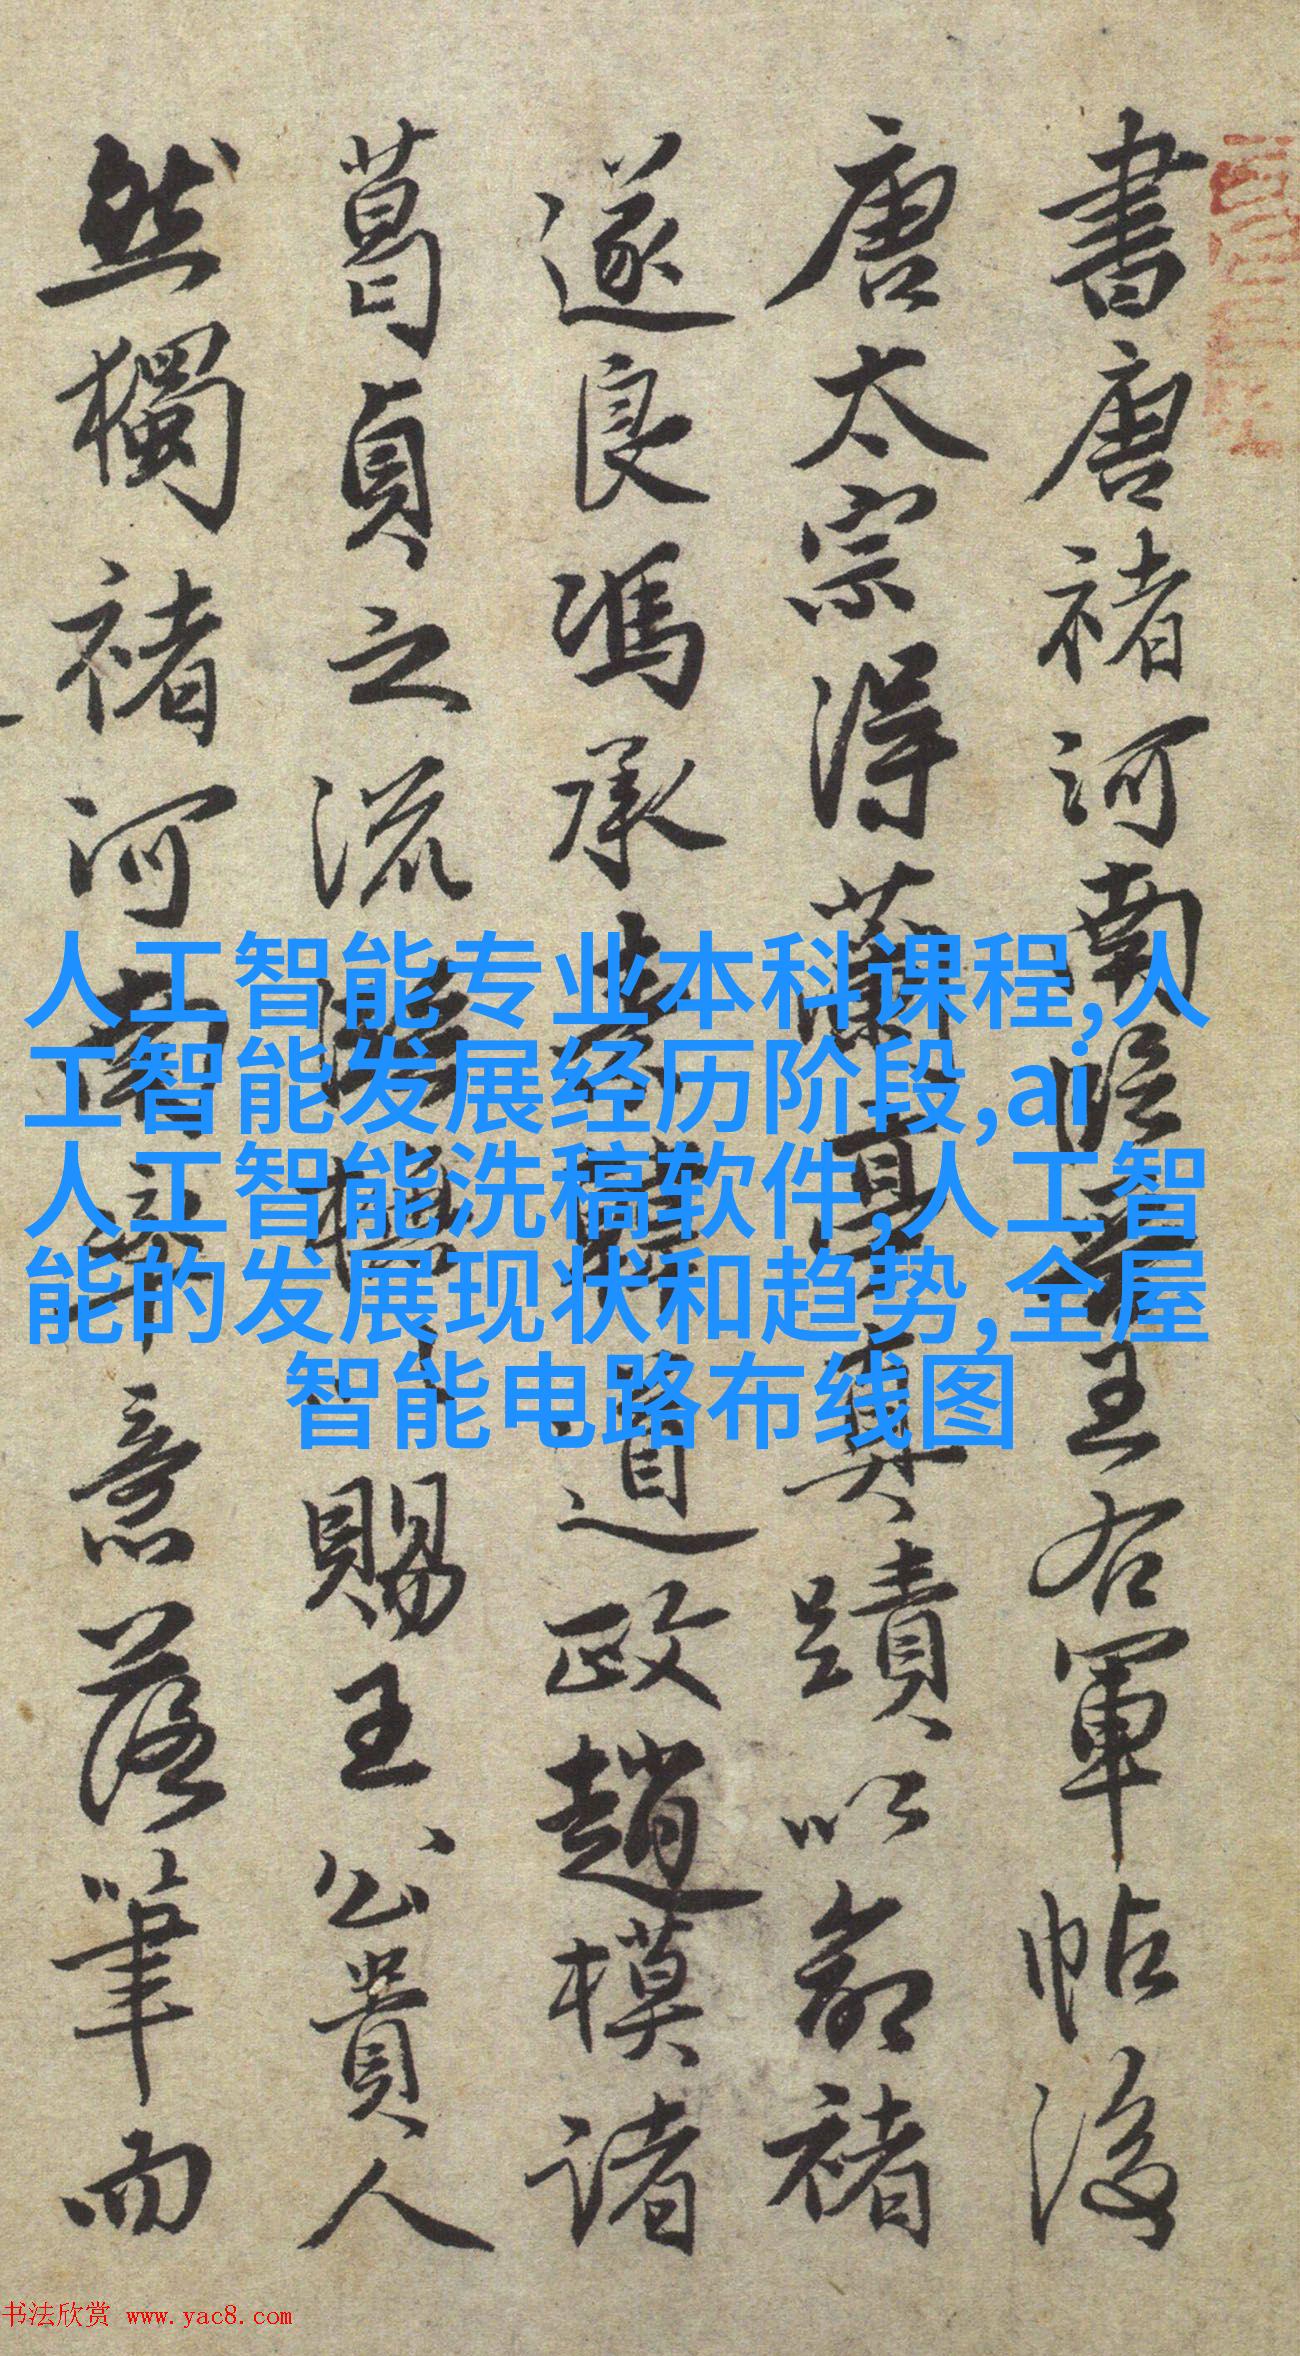 書唐褚河南臨晉王右軍帖後
唐太宗得蘭亭真蹟以命褚
遂良馮承素韓道政趙模諸
葛貞之流賜王公貴人
然獨褚河南率意落筆而
人工智能专业本科课程,人
工智能发展经历阶段,ai
人工智能洗稿软件,人工智
能的发展现状和趋势,全屋
智能电路布线图
书法欣赏 www.yac8.com